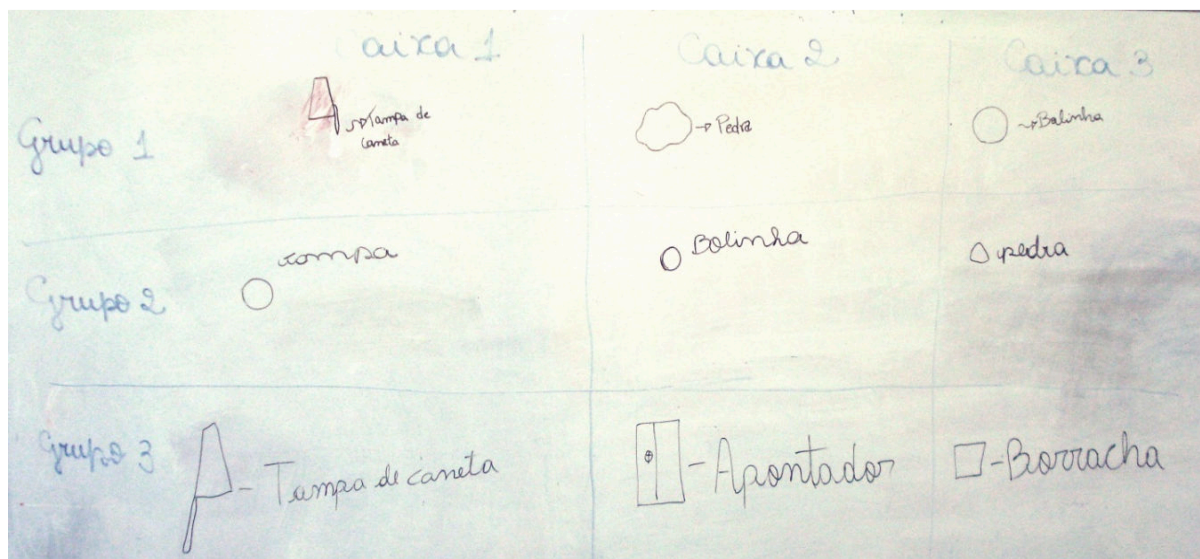 Caixa 1 Caixa 2 Caixa 3
Grupo 1 Tampa de caneta Pedra Bolinha
Grupo 2 tampa Bolinha pedra
Grupo 3 Tampa de caneta Apontador Borracha